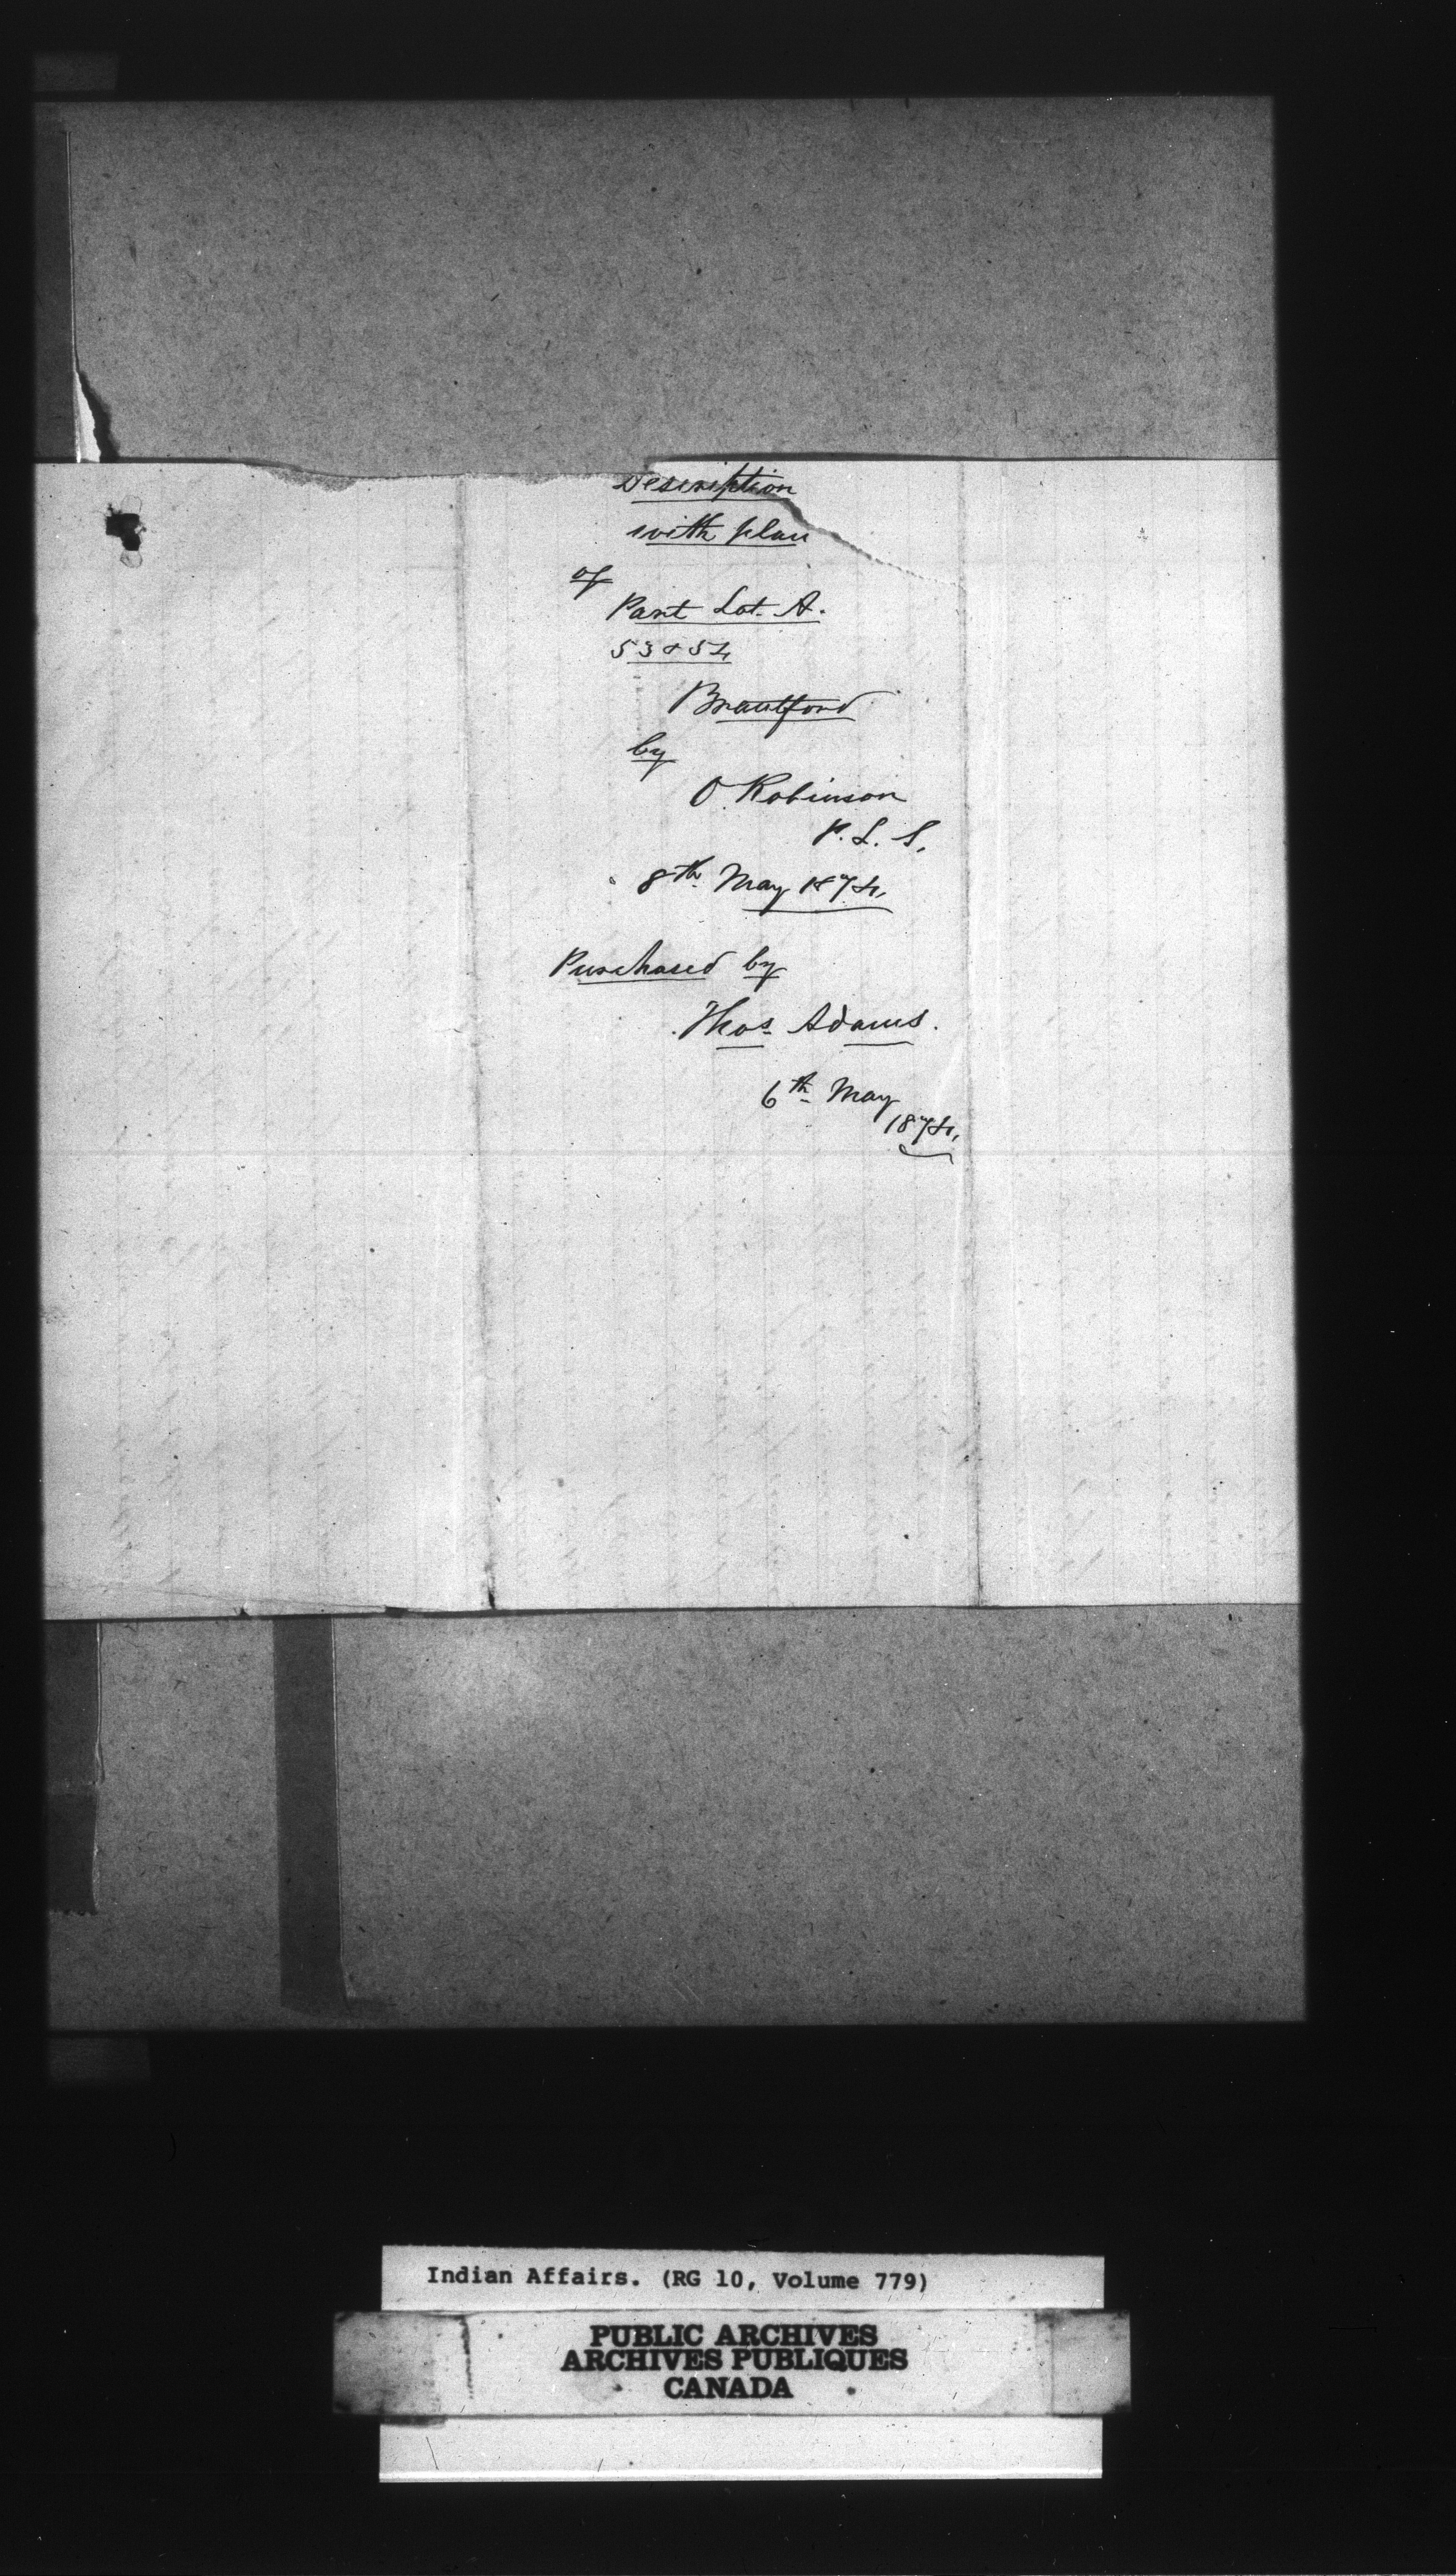 Description
with plan
of
Part Lot. A.
53 & 54
Brantford
by
O. Robinson
P. L. S.
8th May 1874.
Purchased by
Thos Adams.
6th May
1874.
Indian Affairs. (RG 10, Volume 779)
PUBLIC ARCHIVES
ARCHIVES PUBLIQUES
CANADA